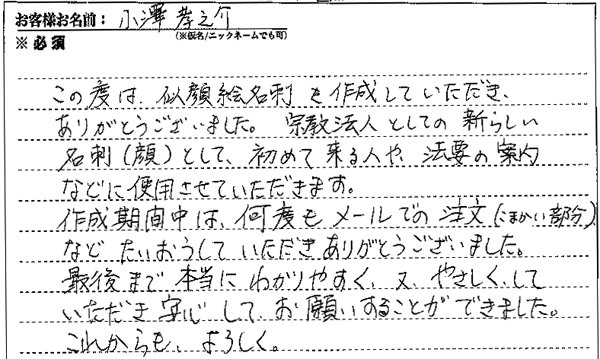 お客様お名前： 小澤 孝之介
(※仮名/ニックネームでも可)
※必須
この度は、似顔絵名刺を作成していただき、
ありがとうございました。 宗教法人としての新らしい
名刺(顔)として、初めて来る人や、法要の案内
などに使用させていただきます。
作成期間中は、何度もメールでの注文(こまかい部分)
など たいおうしていただきありがとうございました。
最後まで本当にわかりやすく、又、やさしくして
いただき安心してお願いすることができました。
これからも、よろしく。